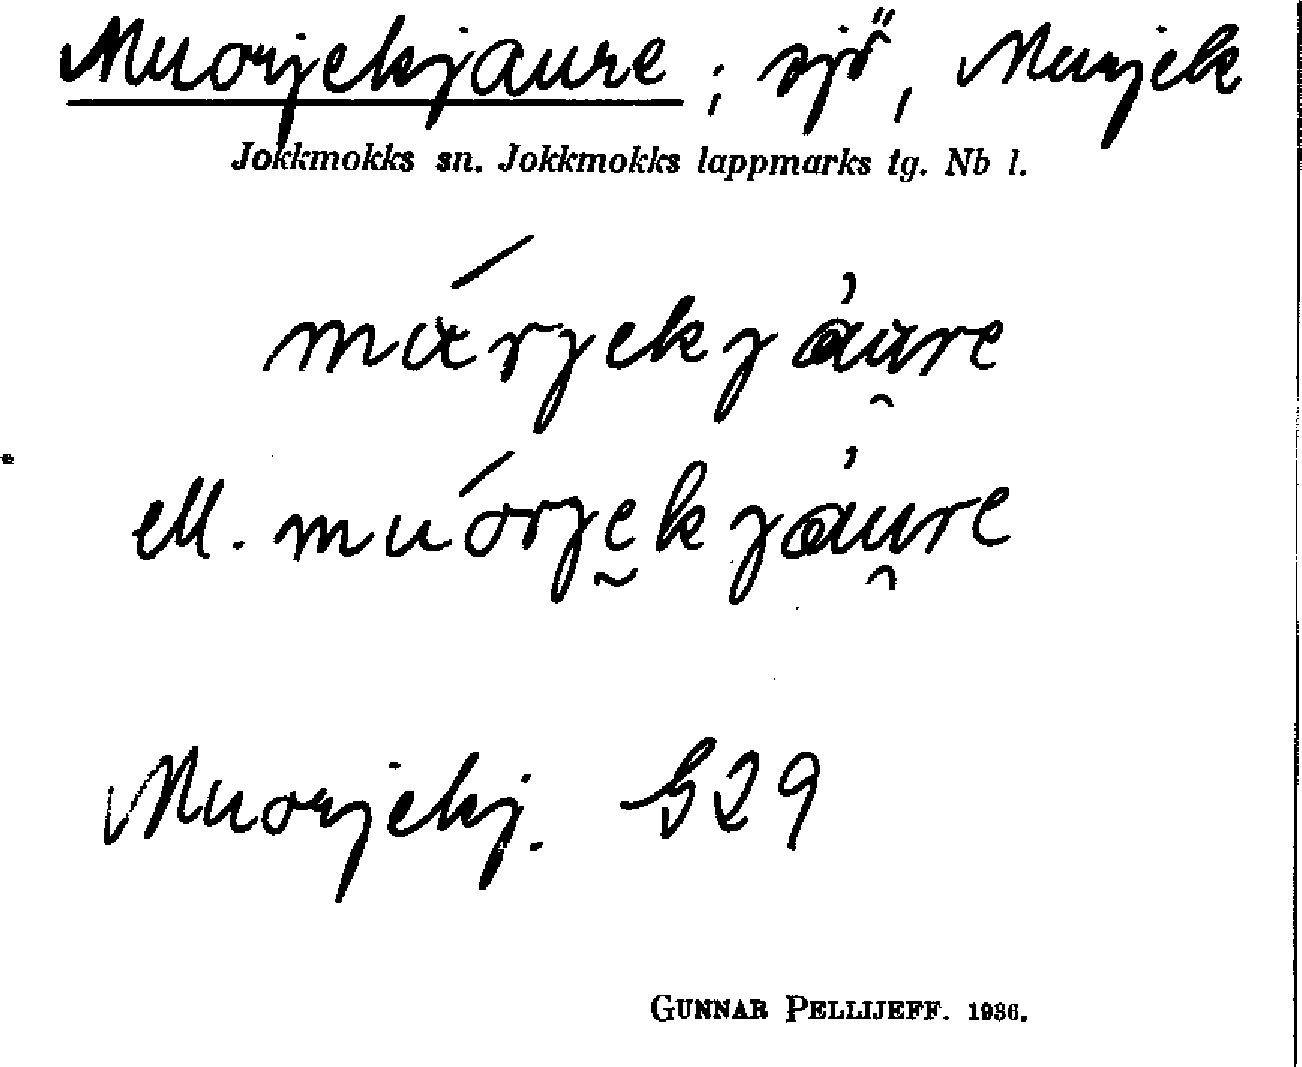 Muorjekjaure; sjö, Murjek
Jokkmokks sn. Jokkmokks lappmarks tg. Nb l.
márjekjàu̯re
ell. muórje̮kjàu̯re
Muorjekj. G29
GUNNAR PELLIJEFF. 1936.